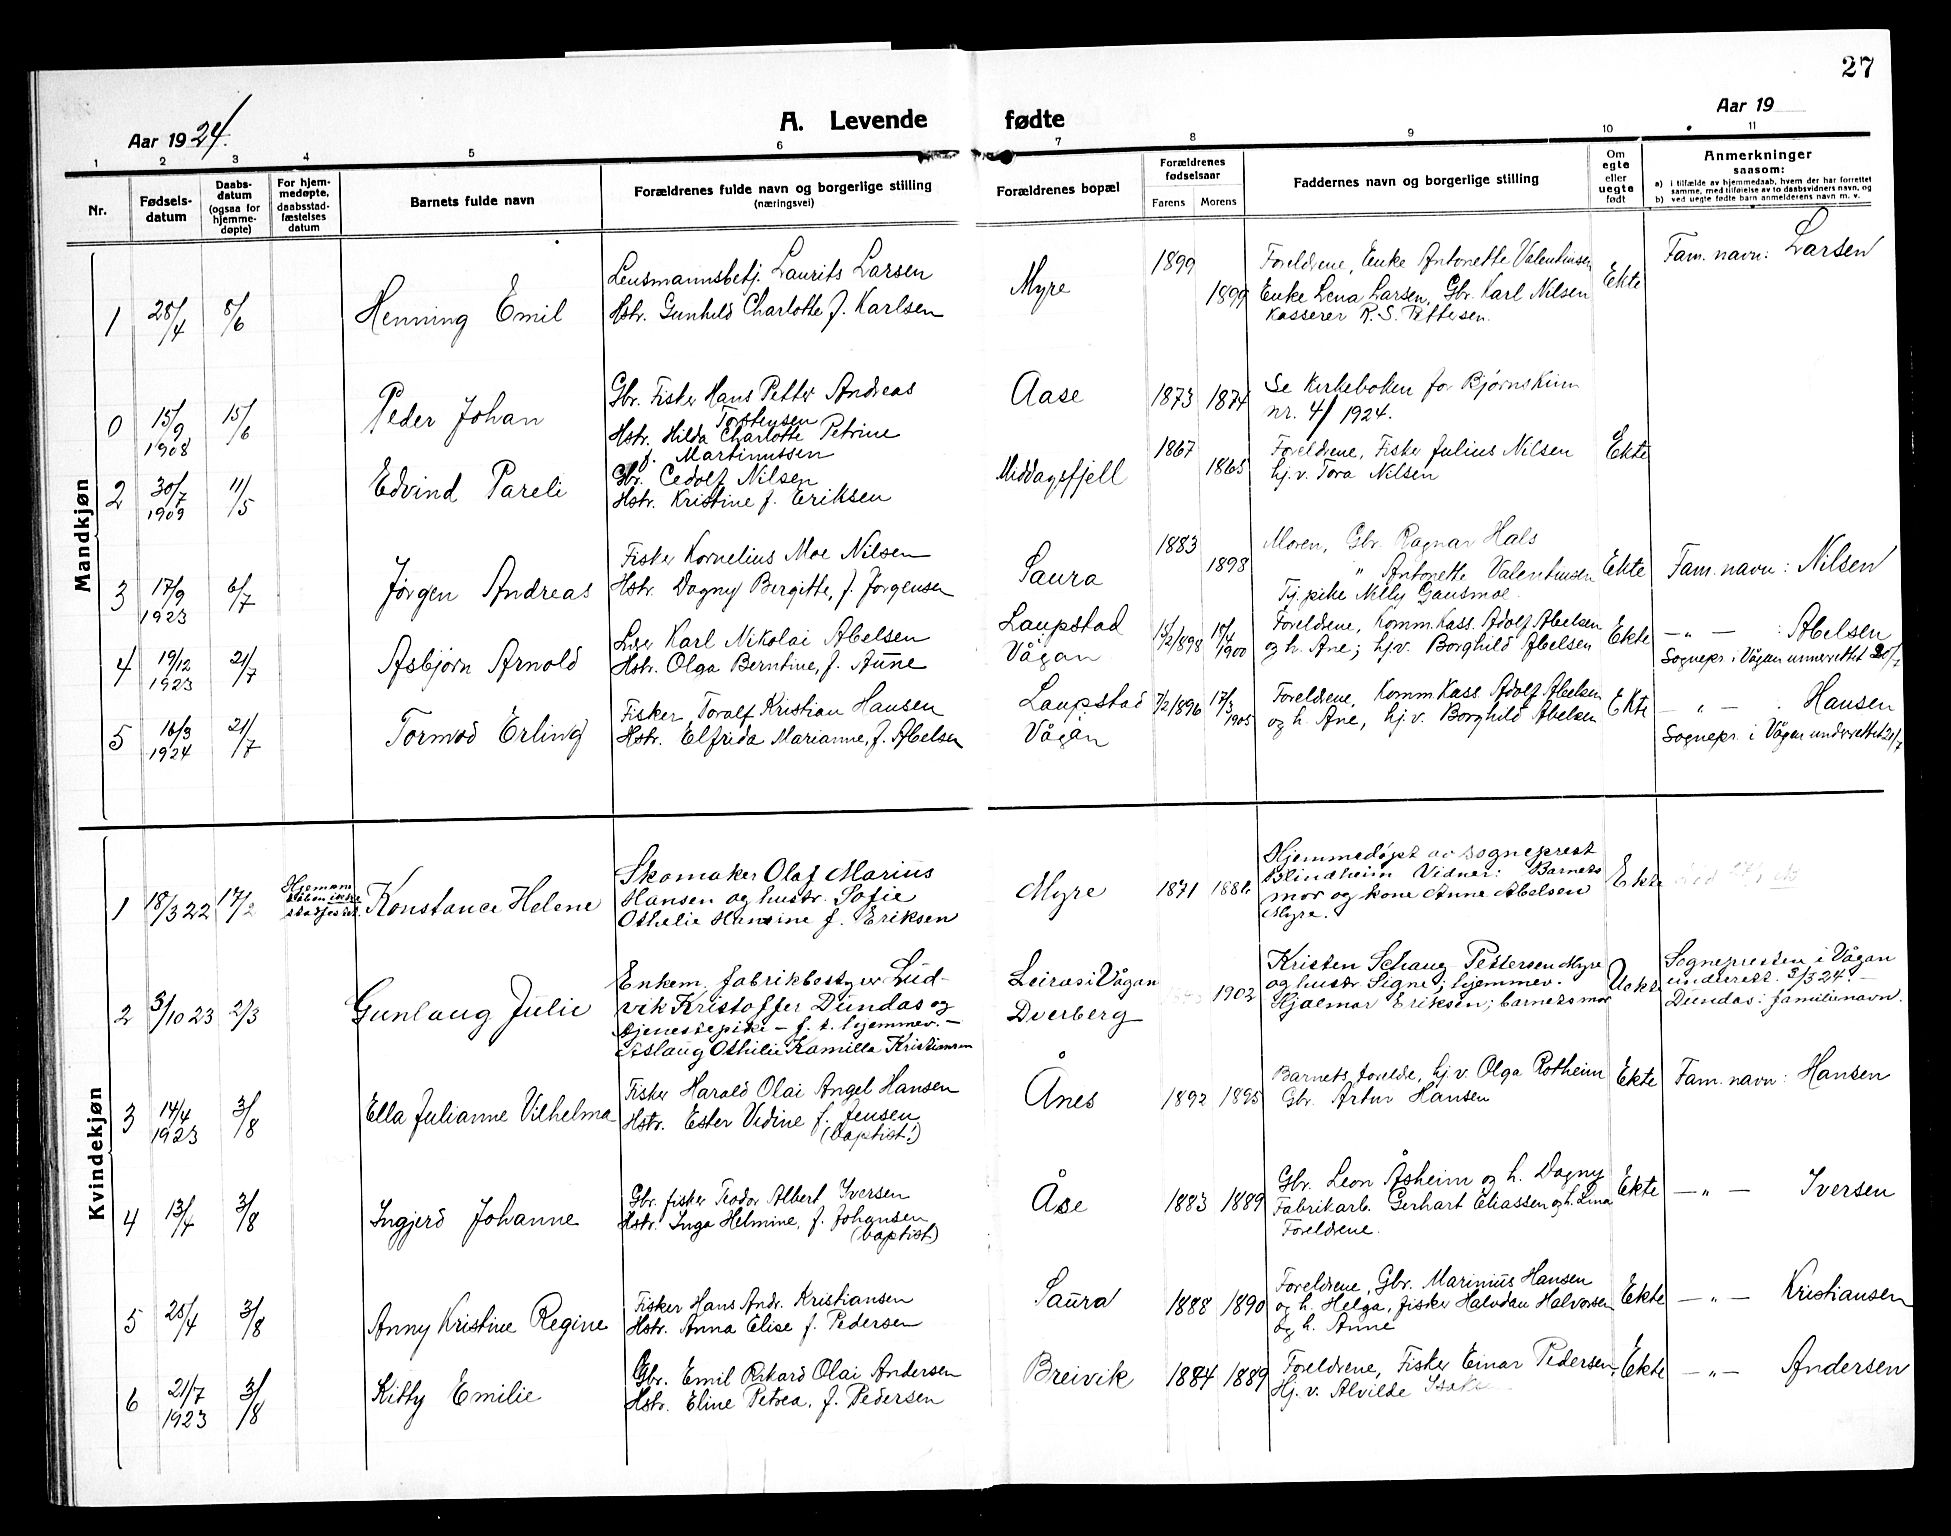 27
Aar 1924.
A. Levende fødte
Aar 19
1 2 3 4 5 6 7 8 9 10 11
Nr.
Fødsels-
datum
Daabs-
datum
(ogsaa for
hjemme-
døpte)
For hjem-
medøpte,
daabsstad-
fæstelses
datum
Barnets fulde navn
Forældrenes fulde navn og borgerlige stilling
(næringsvei)
Forældrenes bopæl
Forældrenes
fødselsaar
Farens Morens
Faddernes navn og borgerlige stilling
Om
egte
eller
uegte
født
Anmerkninger
saasom:
a) i tilfælde av hjemmedaab, hvem der har forrettet
samme, med tilføielse av to daabsvidners navn, og
b) ved uegte fødte barn anmelderens navn m. v.
Mandkjøn
1 28/4 8/6 Henning Emil
Lensmannsbetj. Laurits Larsen
Hstr. Gunhild Charlotte f. Karlsen
Myre 1899 1899
Foreldrene, Enke Antonette Valentinsen
Enke Lena Larsen, Gbr. Karl Nilsen
Kasserer R. S. Pettersen.
Ekte
Fam. navn: Larsen
0 15/9 1908 15/6 Peder Johan
Gbr. Fisker Hans Petter Andreas
Torstensen
Hstr. Hilda Charlotte Petrine
f. Martinussen
Aase 1873 1874
Se Kirkeboken for Bjørnskinn
nr. 4/ 1924.
2 30/7 1909 11/5 Edvind Pareli
Gbr. Cedolf Nilsen
Hstr. Kristine f. Eriksen
Middagsfjell 1867 1865
Foreldrene, Fisker Julius Nilsen
hj.v. Tora Nilsen
Ekte
3 17/9 1923 6/7 Jørgen Andreas
Fisker Kornelius Moe Nilsen
Hstr. Dagny Bergitte, f. Jørgensen
Saura 1883 1898
Moren, Gbr. Ragnar Hals
" Antonette Valentinsen
Tj.pike Nelly Gausmoe.
Ekte
Fam. navn: Nilsen
4 19/12 1923 21/7 Asbjørn Arnold
Karl Nikolai Abelsen
Hstr. Olga Berntine, f. Aune
Laupstad
Vågan
1900
Foreldrene, Komm.Kass. Adolf Abelsen
og h. Ane; hj.v. Borghild Abelsen
Ekte
— " — : Abelsen
Sognepr. i Vågan underrettet
5 16/3 1924 21/7 Tormod Erling
Fisker Toralf Kristian Hansen
Hstr. Elfrida Marianne, f. Abelsen
Laupstad
Vågan
7/2 1896 17/3 1905
Foreldrene, Komm.Kass. Adolf Abelsen
og h. Ane, hj.v. Borghild Abelsen
Ekte
— " — . Hansen
Sognepr. i Vågan underrettet 21/7
Kvindekjøn
1 18/3 22 17/2
Konstance Helene
Skomaker Olaf Marius
Hansen og hustr. Sofie
Othelie Hansine f. Eriksen
Myre 1871
Hjemmedøpt av sogneprest
Blindheim Vidner: Barnets
mor og kone Anne Abelsen
Myre.
Ekte
2 3/10 23 2/3 Gunlaug Julie
Enkem. fabrikbestyrer Lud-
vik Kristoffer Dundas og
tjenestepike — f. t. hjemmev. —
Aslaug Othilie Kamilla Kristiansen
Leiraas i Vågan
Dverberg
1902
Kristen Schaug Pettersen Myre
og hustr Signe; hjemmev.
Hjalmar Eriksen; barnets mor
Uekte
Sognepresten i Vågan
underrett. 3/3 24. —
Dundas: familienavn.
3 14/4 1923 3/8 Ella Julianne Vilhelma
Fisker Harald Olai Angel Hansen
Hstr. Ester Vidine f. Jensen
(baptist!)
Ånes 1892 1895
Barnets forelde, hj.v. Olga Rotheim
Gbr. Artur Hansen
Ekte
Fam. navn: Hansen
4 13/4 3/8 Ingjerd Johanne
Gbr. fisker Teodor Albert Iversen
Hstr. Inga Helmine, f. Johansen
(baptist)
Åse 1883 1889
Gbr. Leon Åsheim og h. Dagny
Fabrikarb. Gerhart Eliassen og h. Lina
Foreldrene.
Ekte
— " — Iversen
5 25/4 3/8 Anny Kristine Regine
Fisker Hans Andr. Kristiansen
Hstr. Anna Elise f. Pedersen
Saura 1888 1890
Foreldrene, Gbr. Marinius Hansen
og h. Helga, fisker Halvdan Halvorsen
og h. Anne
Ekte
— " — Kristiansen
6 21/7 1923 3/8 Kitty Emilie
Gbr. Emil Rikard Olai Andersen
Hstr. Eline Petrea, f. Pedersen
Breivik 1884 1889
Foreldrene, Fisker Einar Pedersen,
Hj. v. Alvilde
Ekte
— " — Andersen